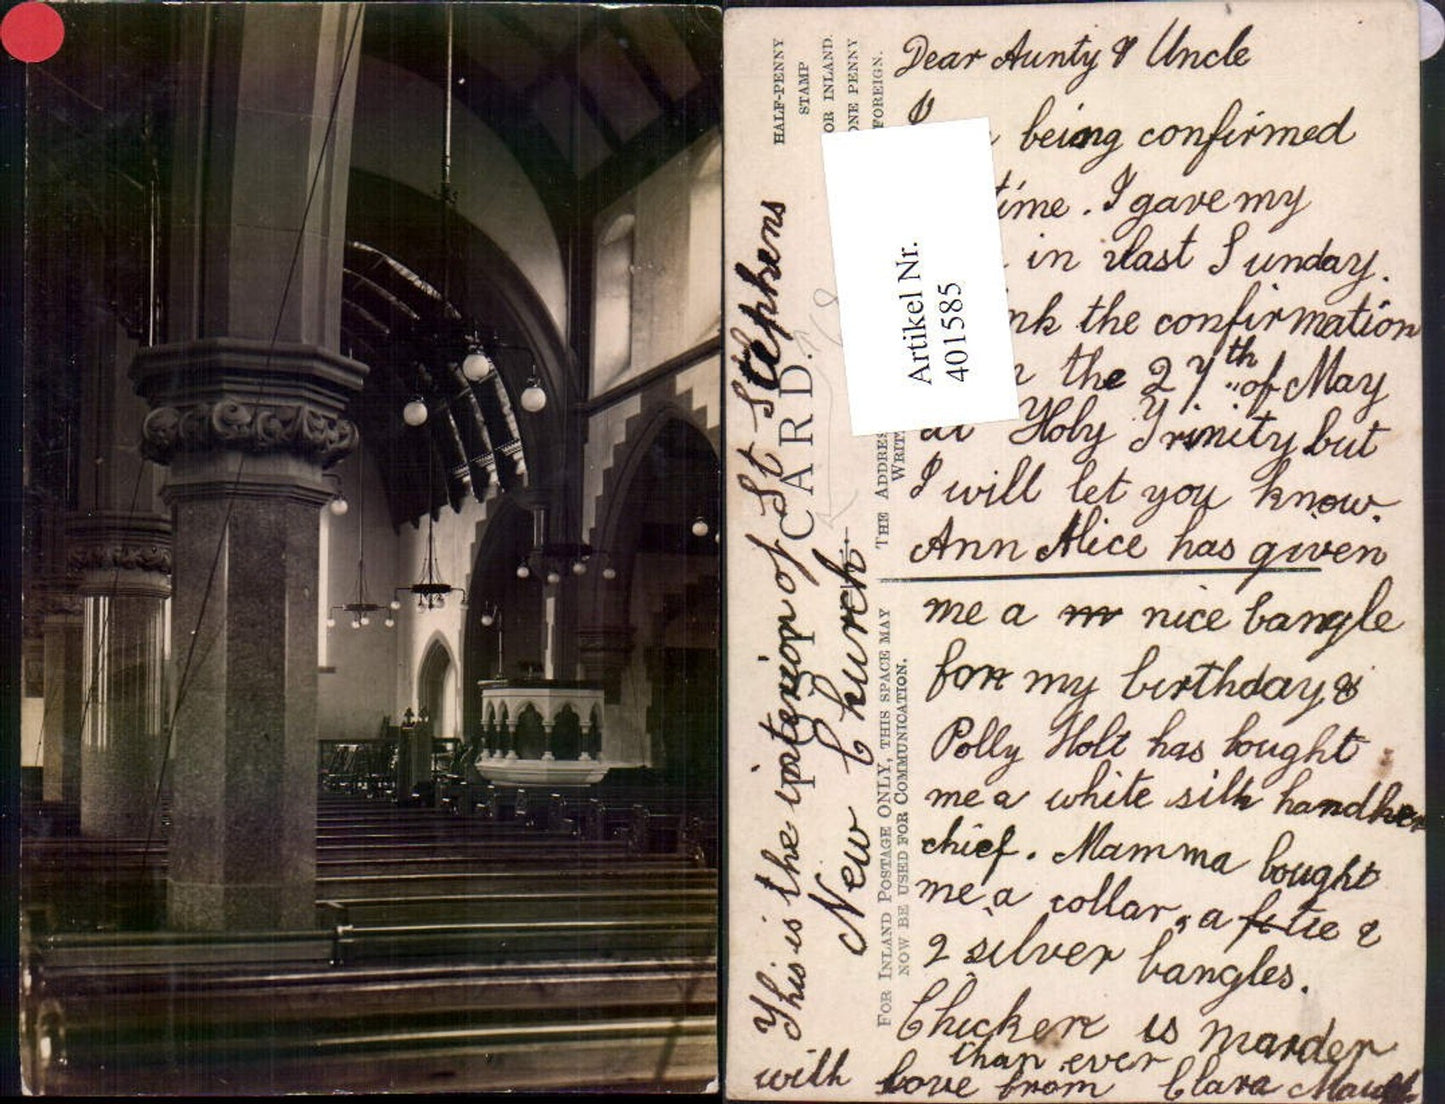 Dear Aunty & Uncle
I being confirmed
time. I gave my
in last Sunday.
the confirmation
the 27th of May
at Holy Trinity but
I will let you know.
Ann Alice has given
me a nice bangle
for my birthday &
Polly Holt has bought
me a white silk handker
chief. Mamma bought
me a collar, a tie &
2 silver bangles.
Chicken is
than ever
with love from Clara
This is the interior of St Stephens
New Church.
CARD.
HALF-PENNY
STAMP
FOR INLAND.
ONE PENNY
FOREIGN.
THE ADDRES
WRIT
FOR INLAND POSTAGE ONLY, THIS SPACE MAY
NOW BE USED FOR COMMUNICATION.
Artikel Nr.
401585